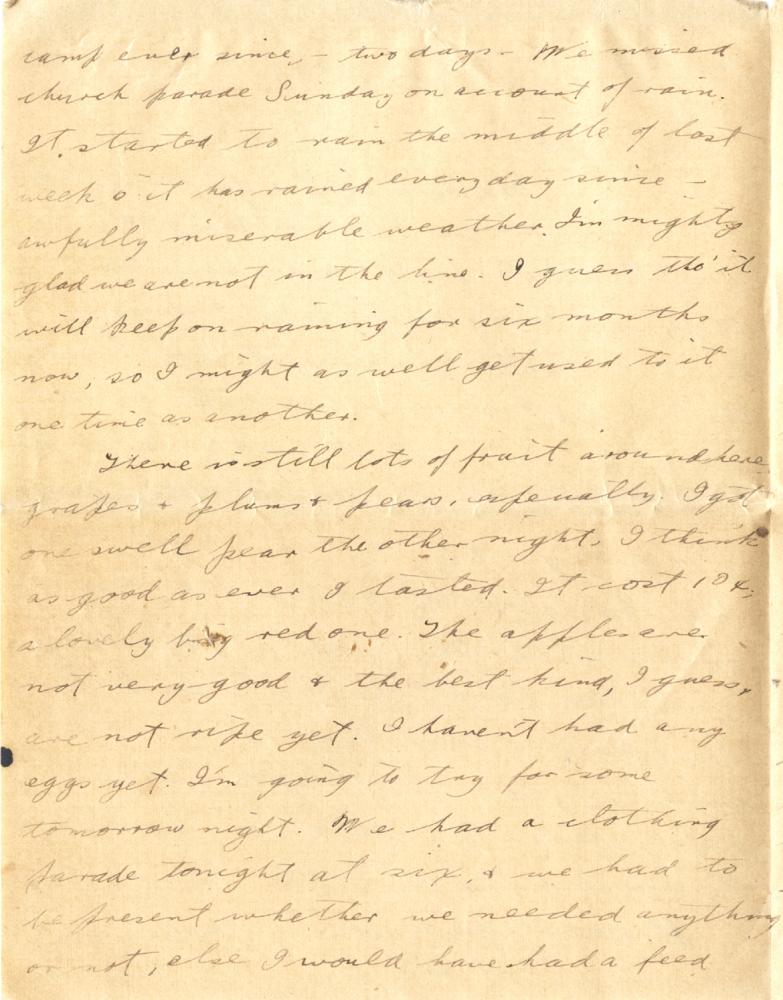 camp ever since, - two days - We missed
church parade Sunday on account of rain.
It started to rain the middle of last
week & it has rained everyday since -
awfully miserable weather. I'm mighty
glad we are not in the line. I guess tho' it
will keep on raining for six months
now, so I might as well get used to it
one time as another.
There is still lots of fruit around here
grapes & plums & pears, especially. I got
one swell pear the other night, I think
as good as ever I tasted. It cost 10¢,
a lovely big red one. The apples are
not very good & the best kind, I guess,
are not ripe yet. I haven't had any
eggs yet. I'm going to try for some
tomorrow night. We had a clothing
parade tonight at six, & we had to
be present whether we needed anything
or not, else I would have had a feed